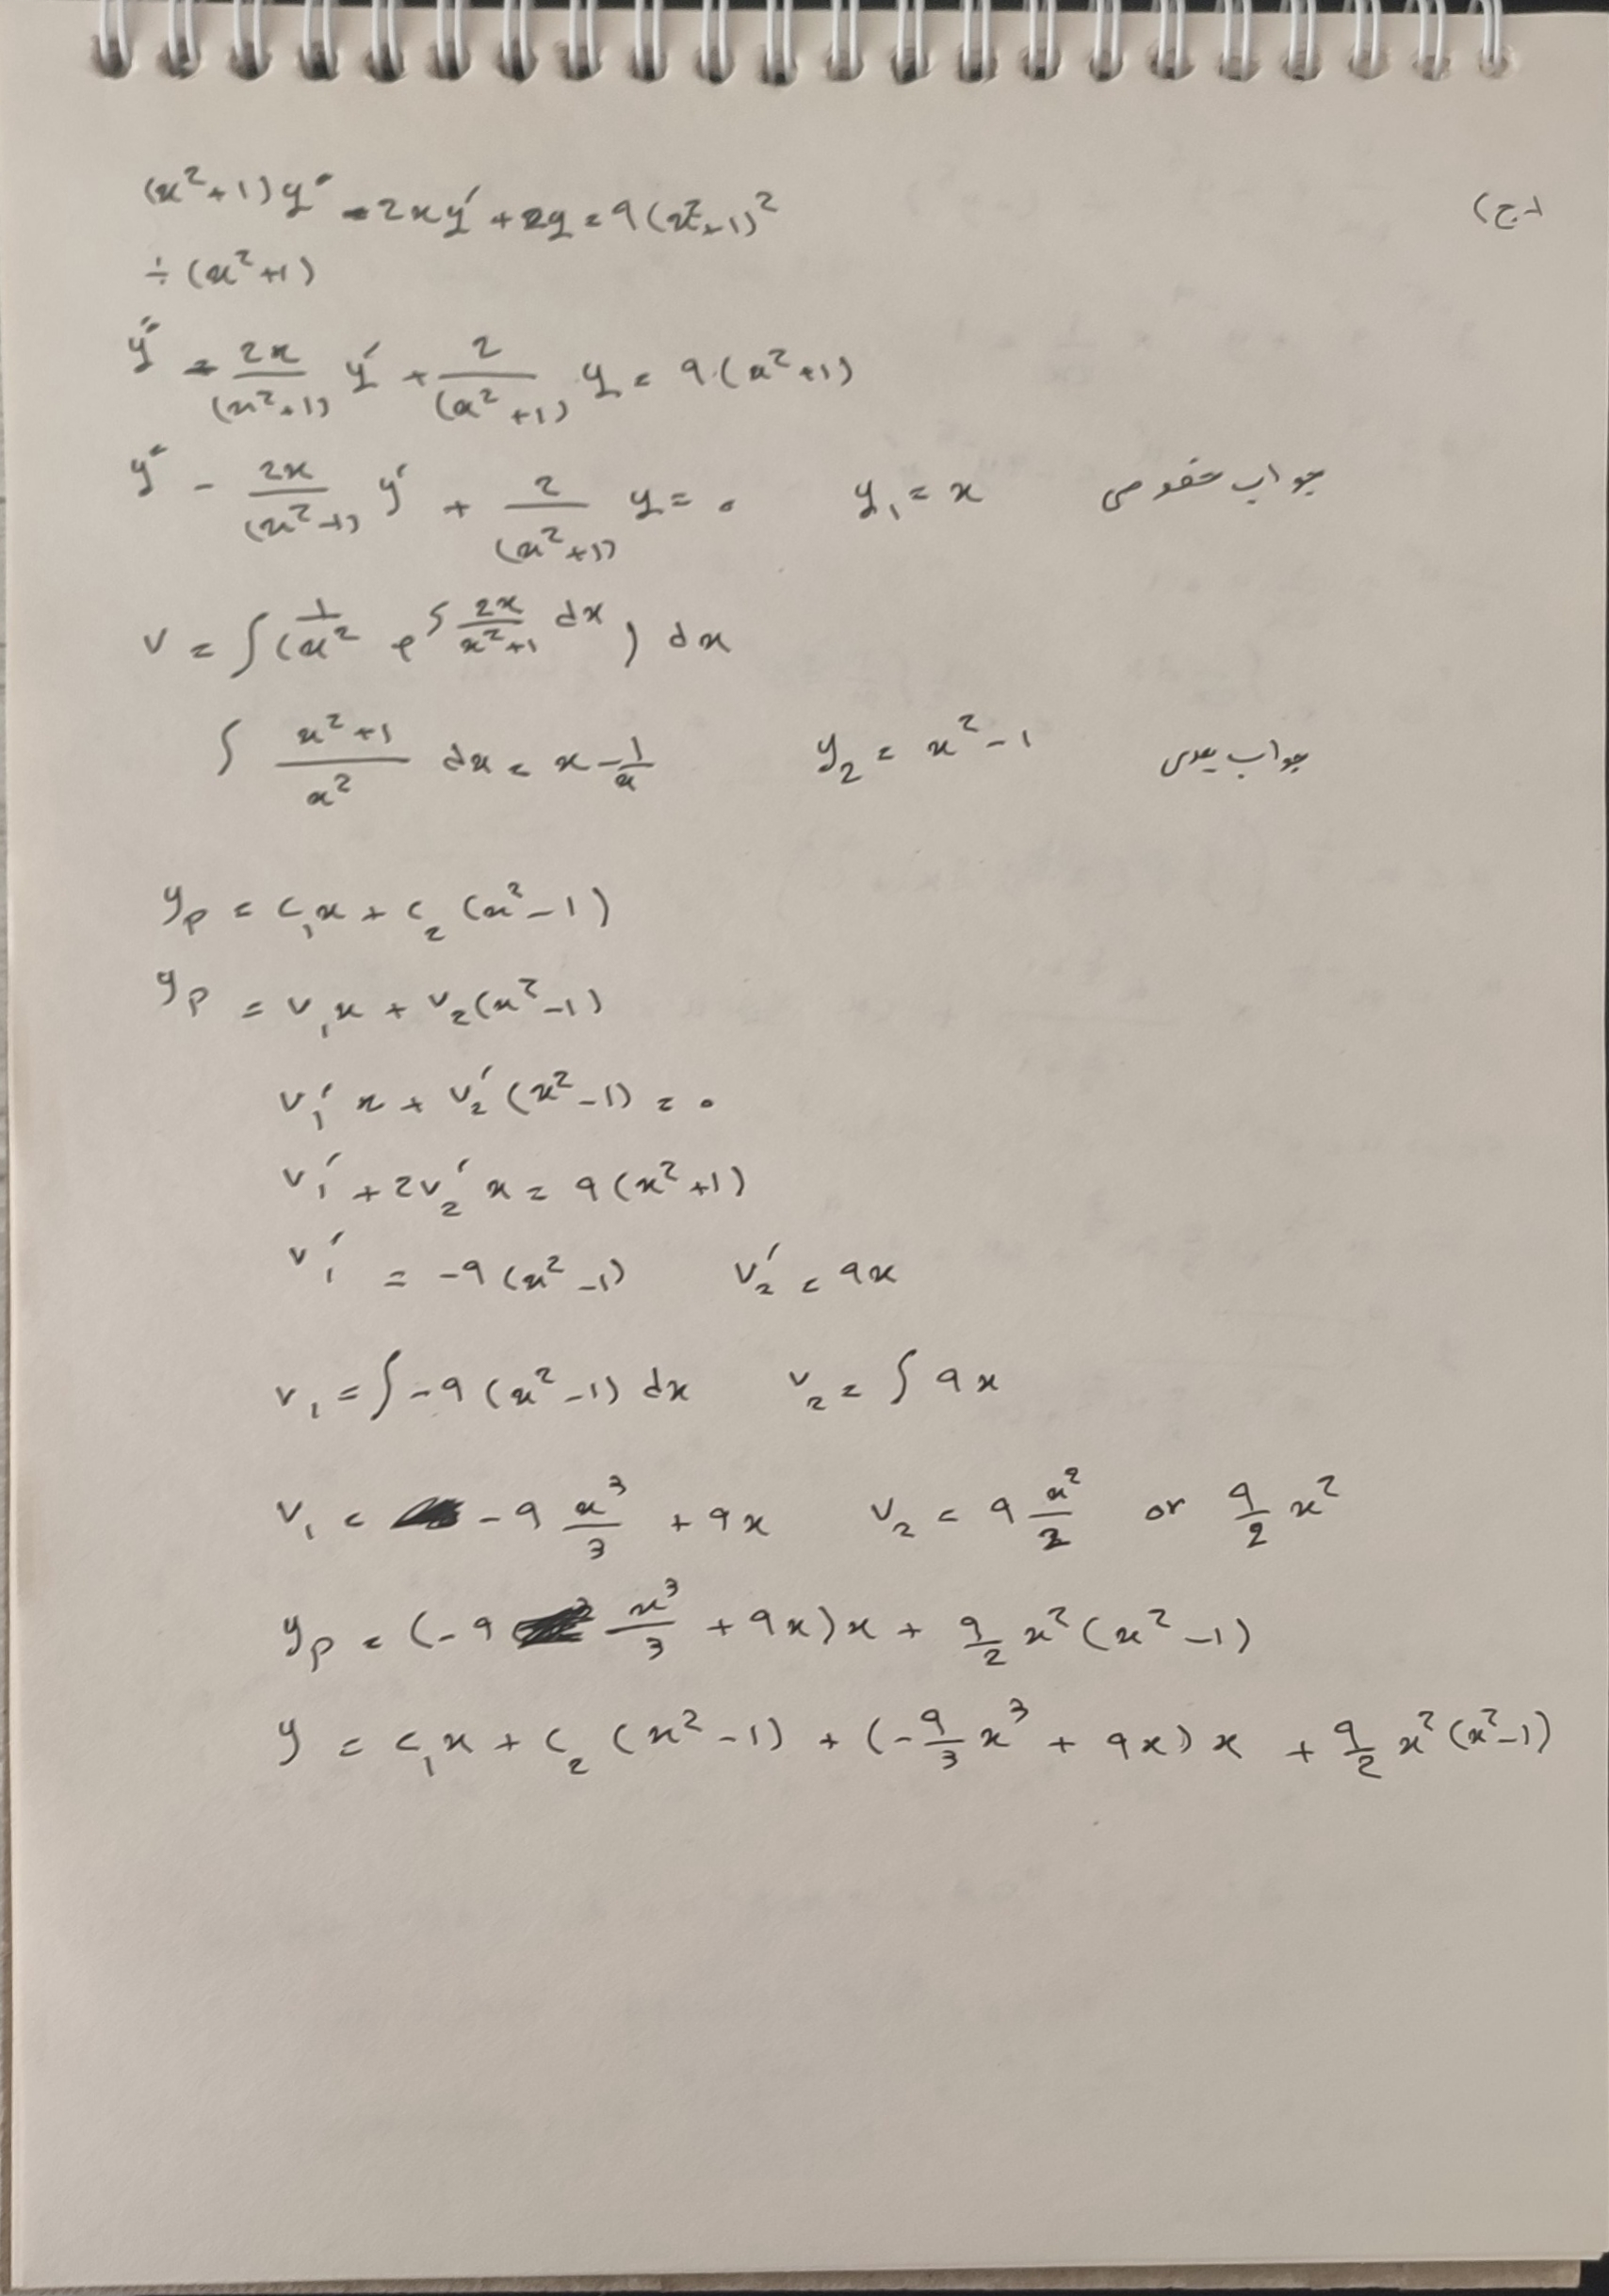 (x²+1)y″ - 2xy′ + 2y = 9(x²+1)² (ج
÷ (x²+1)
y″ - 2x/(x²+1) y′ + 2/(x²+1) y = 9(x²+1)
y″ - 2x/(x²+1) y′ + 2/(x²+1) y = 0 y₁ = x جواب خصوصی
v = ∫(1/x² e^∫ 2x/(x²+1) dx) dx
∫ (x²+1)/x² dx = x - 1/x y₂ = x² - 1 جواب بعدی
yₚ = c₁x + c₂(x²-1)
yₚ = v₁x + v₂(x²-1)
v₁′x + v₂′(x²-1) = 0
v₁′ + 2v₂′x = 9(x²+1)
v₁′ = -9(x²-1) v₂′ = 9x
v₁ = ∫ -9(x²-1) dx v₂ = ∫ 9x
v₁ = -9 x³/3 + 9x v₂ = 9 x²/2 or 9/2 x²
yₚ = (-9 x³/3 + 9x)x + 9/2 x²(x²-1)
y = c₁x + c₂(x²-1) + (-9/3 x³ + 9x)x + 9/2 x²(x²-1)